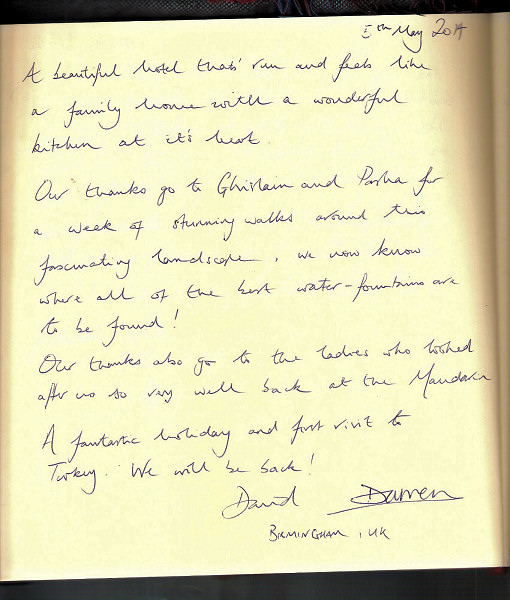 5th May 2014
A beautiful hotel thats' run and feels like
a family home with a wonderful
kitchen at it's heart
Our thanks go to Ghislain and Pasha for
a week of stunning walks around this
fascinating landscape, we now know
where all of the best water-fountains are
to be found!
Our thanks also go to the ladies who looked
after us so very well back at the Mandarin
A fantastic holiday and first visit to
Turkey. We will be back!
David Darren
BIRMINGHAM, UK